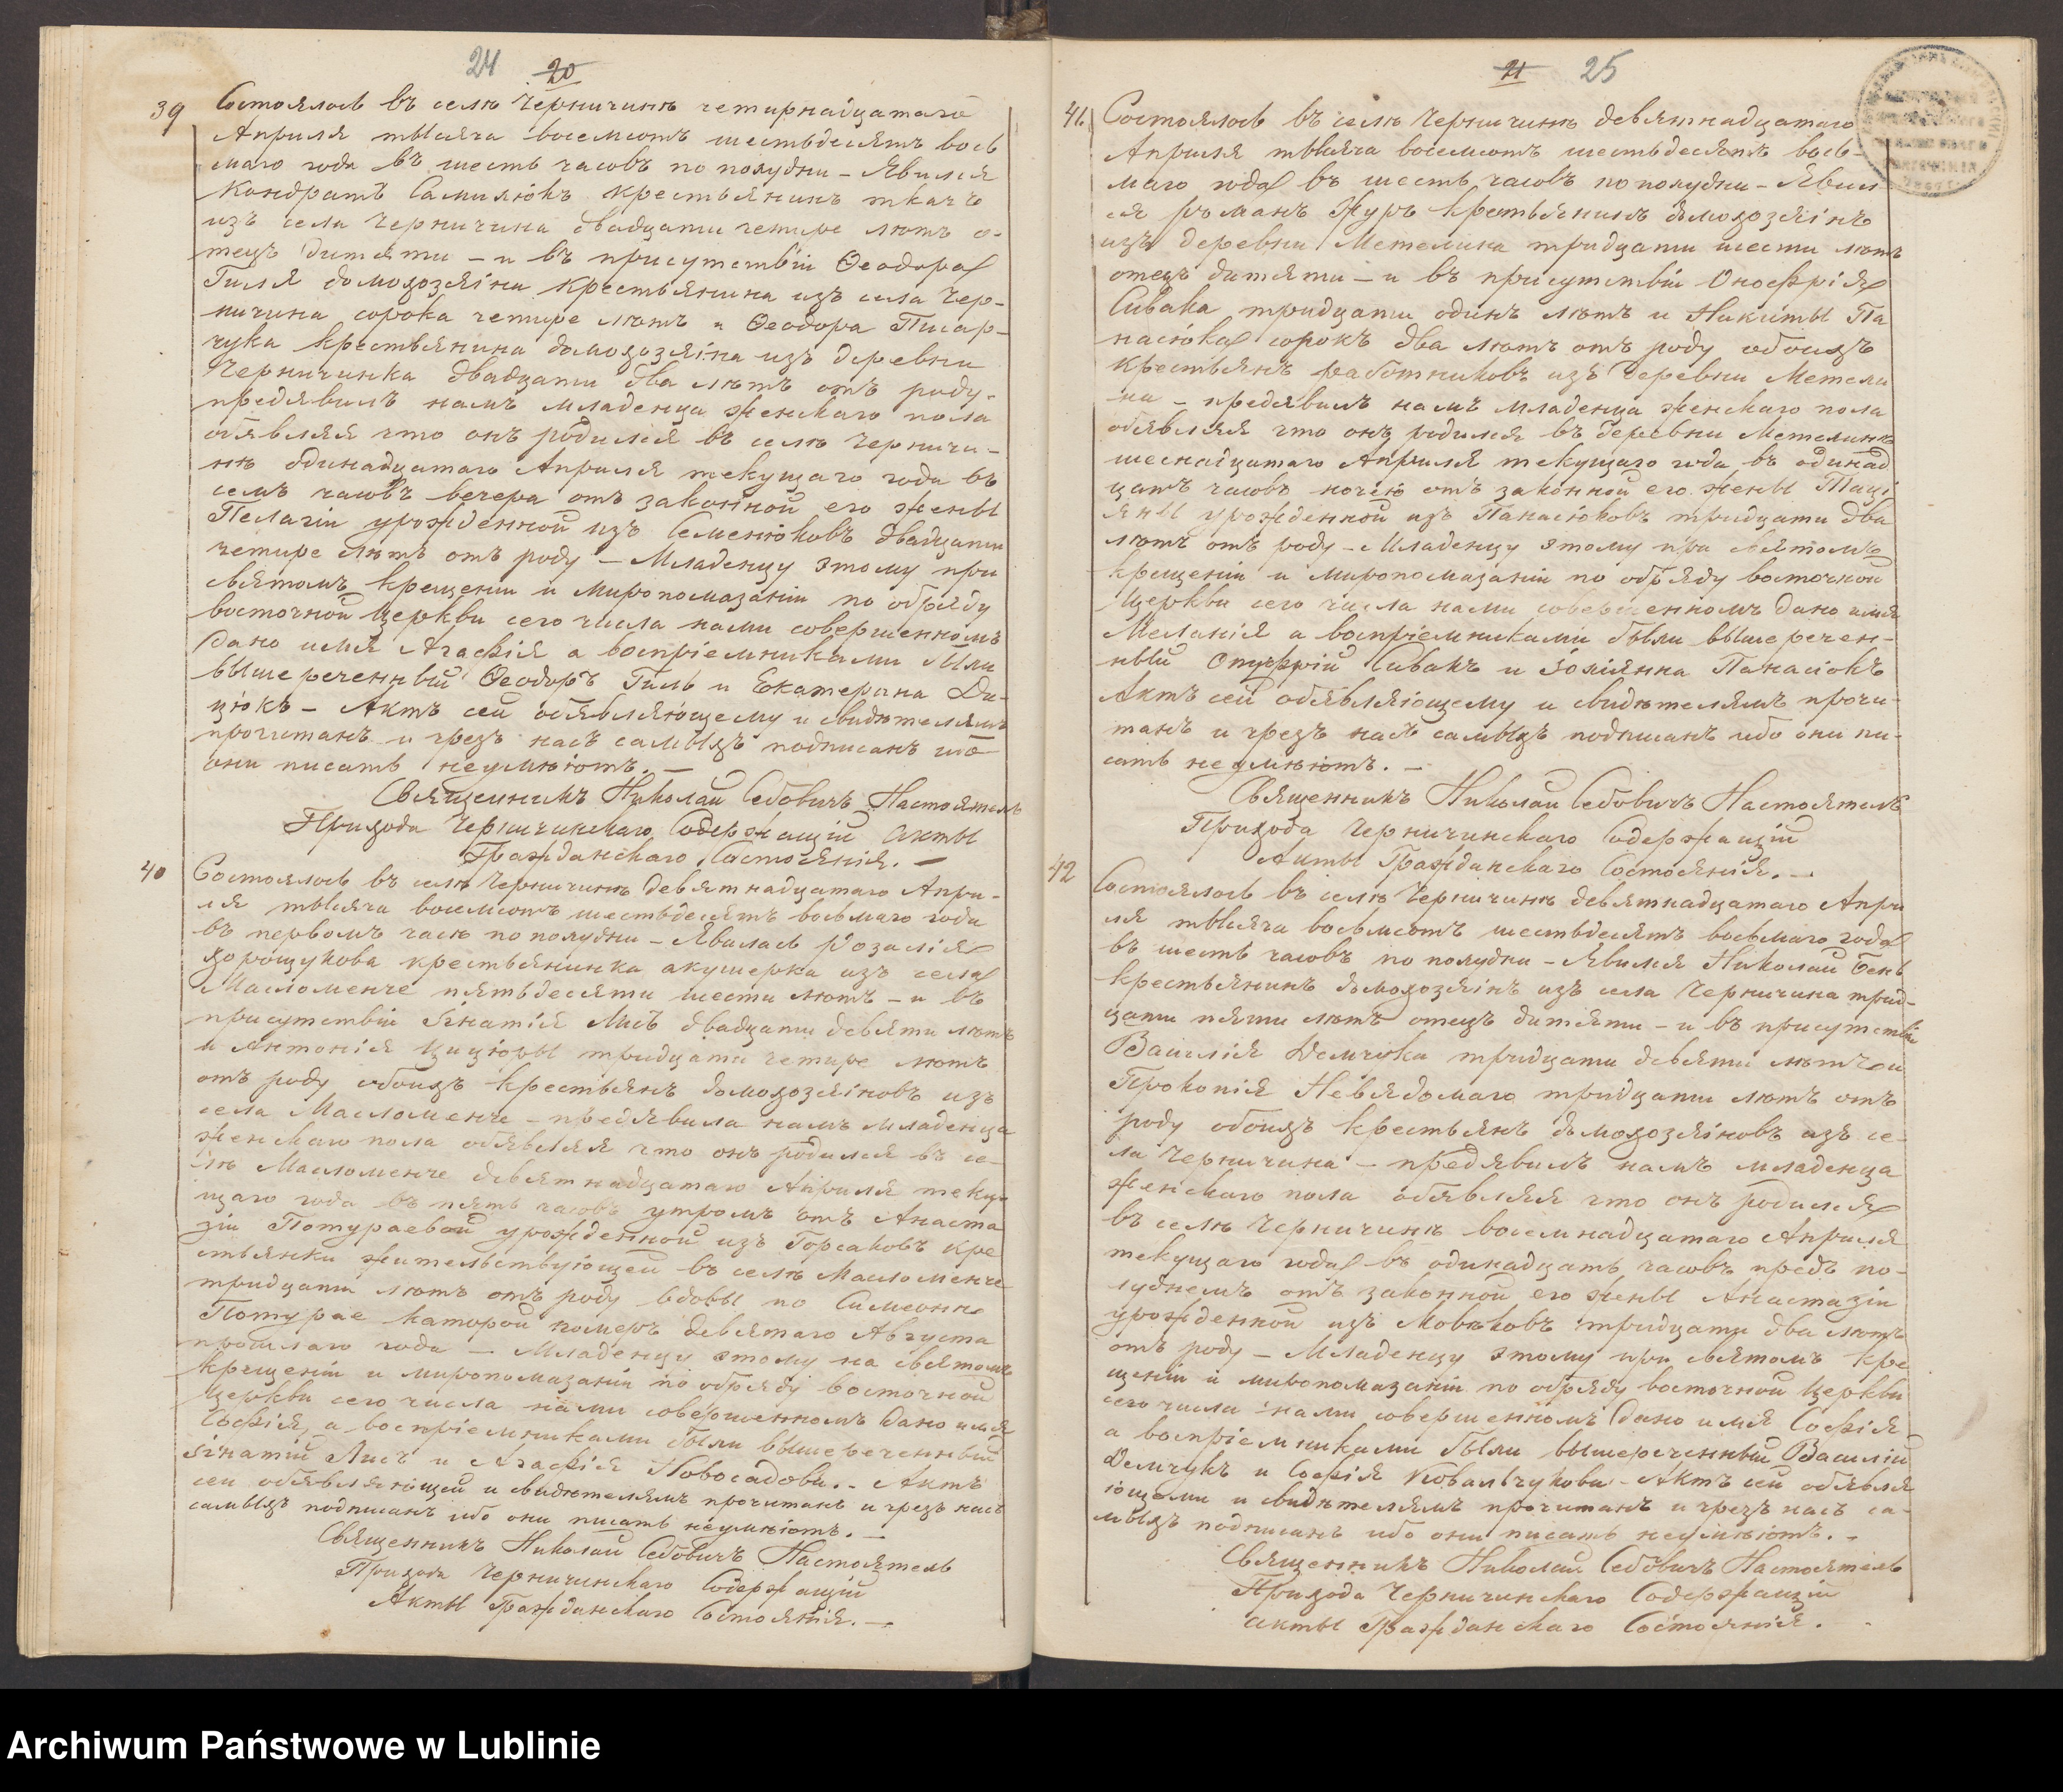 24 20
39 Состоялось въ селѣ Черничинѣ четырнадцатаго
Апрѣля тысяча восемсотъ шестьдесятъ вось
маго года въ шесть часовъ по полудни – Явился
Кондратъ Самилюкъ крестьянинъ ткачъ
изъ села Черничина двадцати четире лѣтъ о-
тецъ дитяти – и въ присутствіи Ѳеодора
Гиля домохозяіна крестьянина изъ села Чер-
ничина сорока четире лѣтъ и Ѳеодора Писар-
чука крестьянина домохозяіна изъ деревни
Черничинка двадцати два лѣтъ отъ роду.
предявилъ намъ младенца женскаго пола
обявляя что онъ родился въ селѣ Черничи-
нѣ одинадцатаго Апрѣля текущаго года въ
семъ часовъ вечера отъ законной его жены
Пелагіи урожденной изъ Семенюковъ двадцати
четире лѣтъ отъ роду – Младенцу этому при
святомъ крещеніи и миропомазаніи по обряду
восточной Церкви сего числа нами совершенномъ
дано имя Агафія а воспріемниками были
вышереченный Ѳеодоръ Гиль и Екатерина Ди-
цюкъ – Актъ сей обявляющему и свидѣтелямъ
прочитанъ и чрезъ насъ самыхъ подписанъ ибо
они писать неумѣютъ. –
Священникъ Николай Седовичъ Настоятель
Прихода Черничинскаго Содержащій Акты
Гражданскаго Состоянія. –
40 Состоялось въ селѣ Черничинѣ девятнадцатаго Апрѣ-
ля тысяча восемсотъ шестьдесятъ восьмаго года
въ первомъ часѣ по полудни – Явилась Розалія
Хорощукова крестьянинка акушерка изъ села
Масломенче пятьдесяти шести лѣтъ – и въ
присутствіи Ігнатія Лисъ двадцати девяти лѣтъ
и Антонія Цицюры тридцати четире лѣтъ
отъ роду обоихъ крестьянъ домохозяіновъ изъ
села Масломенче – предявила намъ младенца
женскаго пола обявляя что онъ родился въ се-
лѣ Масломенче девятнадцатаго Апрѣля теку
щаго года въ пять часовъ утромъ отъ Анаста
зіи Потураевой урожденной изъ Горсаковъ кре
стьянки жительствующей въ селѣ Масломенче
тридцати лѣтъ отъ роду вдовы по Симеонѣ
Потурае каторой померъ девятаго Августа
прошлаго года – Младенцу этому на святомъ
крещеніи и миропомазаніи по обряду восточной
Церкви сего числа нами совершенномъ дано имя
Софія, а воспріемниками были вышереченный
Ігнатій Лисъ и Агафія Новосадова. – Актъ
сей обявляющей и свидѣтелямъ прочитанъ и чрезъ насъ
самыхъ подписанъ ибо они писать неумѣютъ. –
Священникъ Николай Седовичъ Настоятель
Прихода Черничинскаго Содержащій
Акты Гражданскаго Состоянія. –
21 25
41. Состоялось въ селѣ Черничинѣ девятнадцатаго
Апрѣля тысяча восемсотъ шестьдесятъ вось-
маго года въ шесть часовъ по полудни – Явил
ся Романъ Журъ крестьянинъ домохозяінъ
изъ деревни Метелина тридцати шести лѣтъ
отецъ дитяти – и въ присутствіи Онофрія
Сивака тридцати одинъ лѣтъ и Никиты Па
насюка сорокъ два лѣтъ отъ роду обоихъ
крестьянъ работниковъ изъ деревни Метели
на – предявилъ намъ младенца женскаго пола
обявляя что онъ родился въ деревни Метелинѣ
шеснадцатаго Апрѣля текущаго года въ одинад
цатъ часовъ ночею отъ законной его жены Таці
яны урожденной изъ Панасюковъ тридцати два
лѣтъ отъ роду – Младенцу этому при святомъ
крещеніи и миропомазаніи по обряду восточной
Церкви сего числа нами совершенномъ дано имя
Меланія а воспріемниками были вышеречен-
ный Онуфрій Сивакъ и Юліянна Панасюкъ
Актъ сей обявляющему и свидѣтелямъ прочи-
танъ и чрезъ насъ самыхъ подписанъ ибо они пи-
сать неумѣютъ. –
Священникъ Николай Седовичъ Настоятель
Прихода Черничинскаго Содержащій
Акты Гражданскаго Состоянія. –
42 Состоялось въ селѣ Черничинѣ девятнадцатаго Апрѣ
ля тысяча восьмсотъ шестьдесятъ восьмаго года
въ шесть часовъ по полудни – Явился Николай Бень
крестьянинъ домохозяінъ изъ села Черничина трид-
цати пяти лѣтъ отецъ дитяти – и въ присутствіи
Василія Демчука тридцати девяти лѣтъ и
Прокопія Невядомаго тридцати лѣтъ отъ
роду обоихъ крестьянъ домохозяіновъ изъ се-
ла Черничина – предявилъ намъ младенца
женскаго пола обявляя что онъ родился
въ селѣ Черничинѣ восемнадцатаго Апрѣля
текущаго года въ одинадцать часовъ предъ по-
луднемъ отъ законной его жены Анастазіи
урожденной изъ Мовковъ тридцати два лѣтъ
отъ роду – Младенцу этому при святомъ кре
щеніи и миропомазаніи по обряду восточной Церкви
сего числа нами совершенномъ дано имя Софія
а воспріемниками были вышереченный Василій
Демчукъ и Софія Ковальчукова – Актъ сей обявля
ющему и свидѣтелямъ прочитанъ и чрезъ насъ са-
мыхъ подписанъ ибо они писать неумѣютъ. –
Священникъ Николай Седовичъ Настоятель
Прихода Черничинскаго Содержащій
Акты Гражданскаго Состоянія.
Archiwum Państwowe w Lublinie